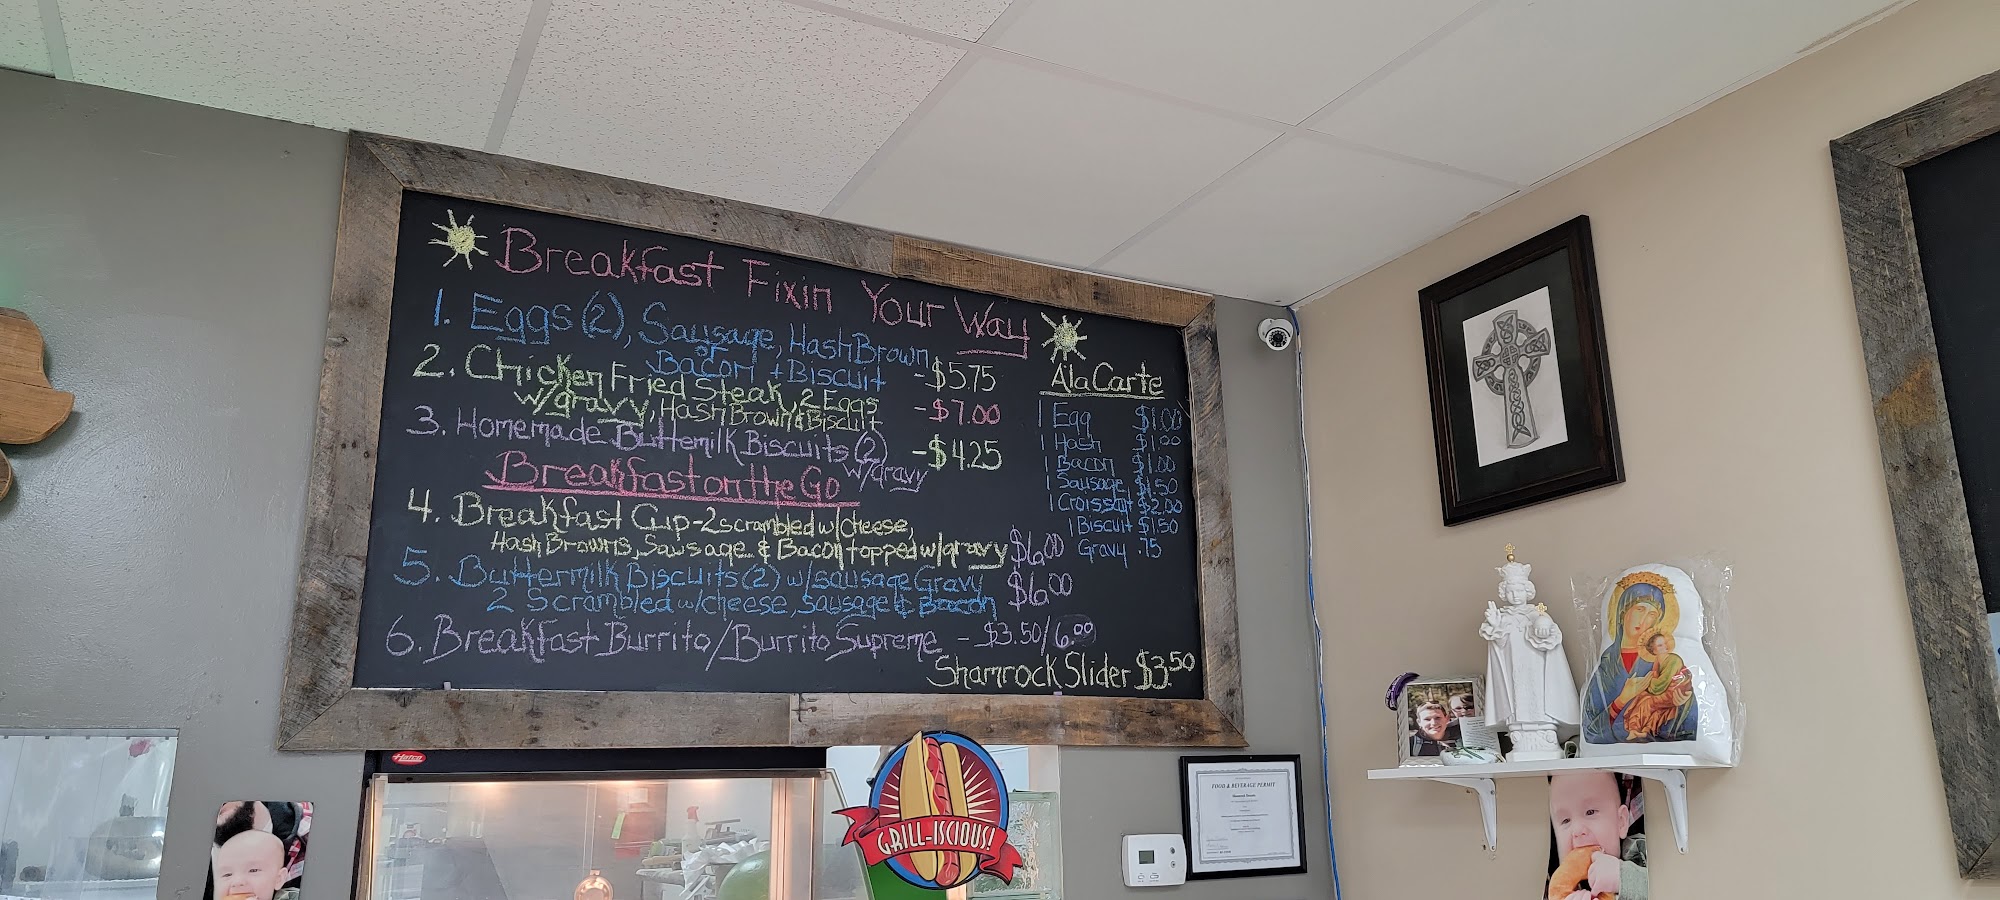 Breakfast Fixin Your Way
1. Eggs (2), Sausage, Hash Brown
or
Bacon + Biscuit -$5.75
2. Chicken Fried Steak, 2 Eggs
w/gravy, Hash Brown & Biscuit -$7.00
3. Homemade Buttemilk Biscuits (2)
w/gravy -$4.25
Breakfast on the Go
4. Breakfast Cup - 2 scrambled w/cheese,
Hash Browns, Sausage & Bacon topped w/gravy $6.00
5. Buttermilk Biscuits (2) w/sausage Gravy
2 Scrambled w/cheese, Sausage & Bacon $6.00
6. Breakfast Burrito/Burrito Supreme - $3.50/6.00
Shamrock Slider $3.50
A'la Carte
1 Egg $1.00
1 Hash $1.00
1 Bacon $1.00
1 Sausage $1.50
1 Croissant $2.00
1 Biscuit $1.50
Gravy .75
Hatco
GRILL-ISCIOUS!
FOOD & BEVERAGE PERMIT